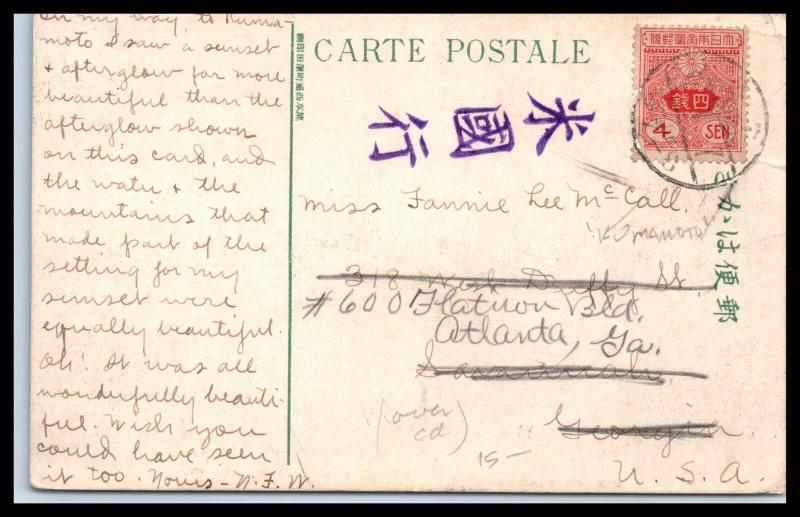 On my way to Kuma-
moto I saw a sunset
+ afterglow far more
beautiful than the
afterglow shown
on this card, and
the water + the
mountains that
made part of the
setting for my
sunset were
equally beautiful.
Oh! It was all
wonderfully beauti-
ful. Wish you
could have seen
it too. Yours - N.F.W.
CARTE POSTALE
米國行
大日本帝國郵便
四錢
4 SEN
郵便はかき
Miss Fannie Lee McCall,
"KUMAMOTO"
318 West Duffy St.,
#600 Flatiron Bld.
Atlanta, Ga.
Savannah,
(over
cd)
Georgia.
15-
U.S.A.